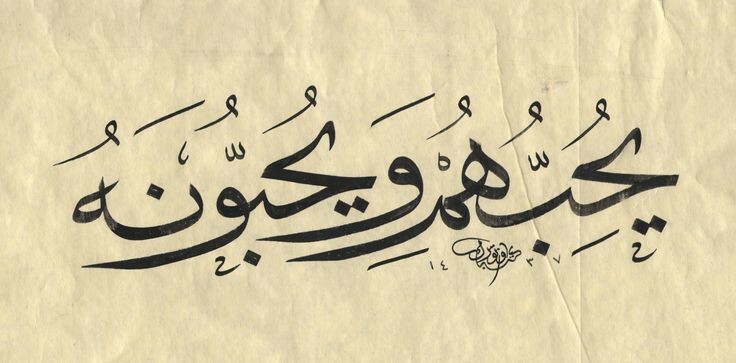 يُحِبُّهُمْ وَيُحِبُّونَهُ
١٤٣٧